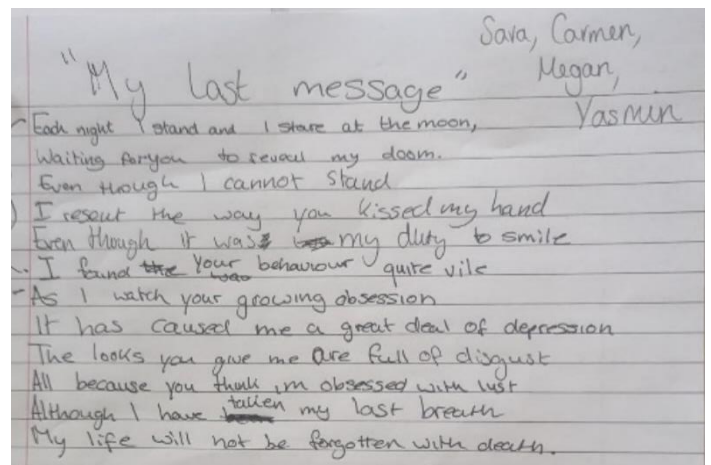 Sara, Carmen,
Megan,
Yasmin
"My last message"
Each night I stand and I stare at the moon,
Waiting for you to reveal my doom.
Even though I cannot stand
I resent the way you kissed my hand
Even though it was my duty to smile
I found your behaviour quite vile
As I watch your growing obsession
It has caused me a great deal of depression
The looks you give me are full of disgust
All because you think im obsessed with lust
Although I have taken my last breath
My life will not be forgotten with death.